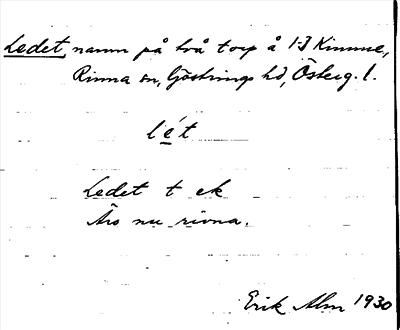 Ledet, namn på två torp å 1-3 Kimme,
Rinna sn, Göstrings hd, Österg. l.
lét
Ledet t ek
Äro nu rivna.
Erik Alm 1930